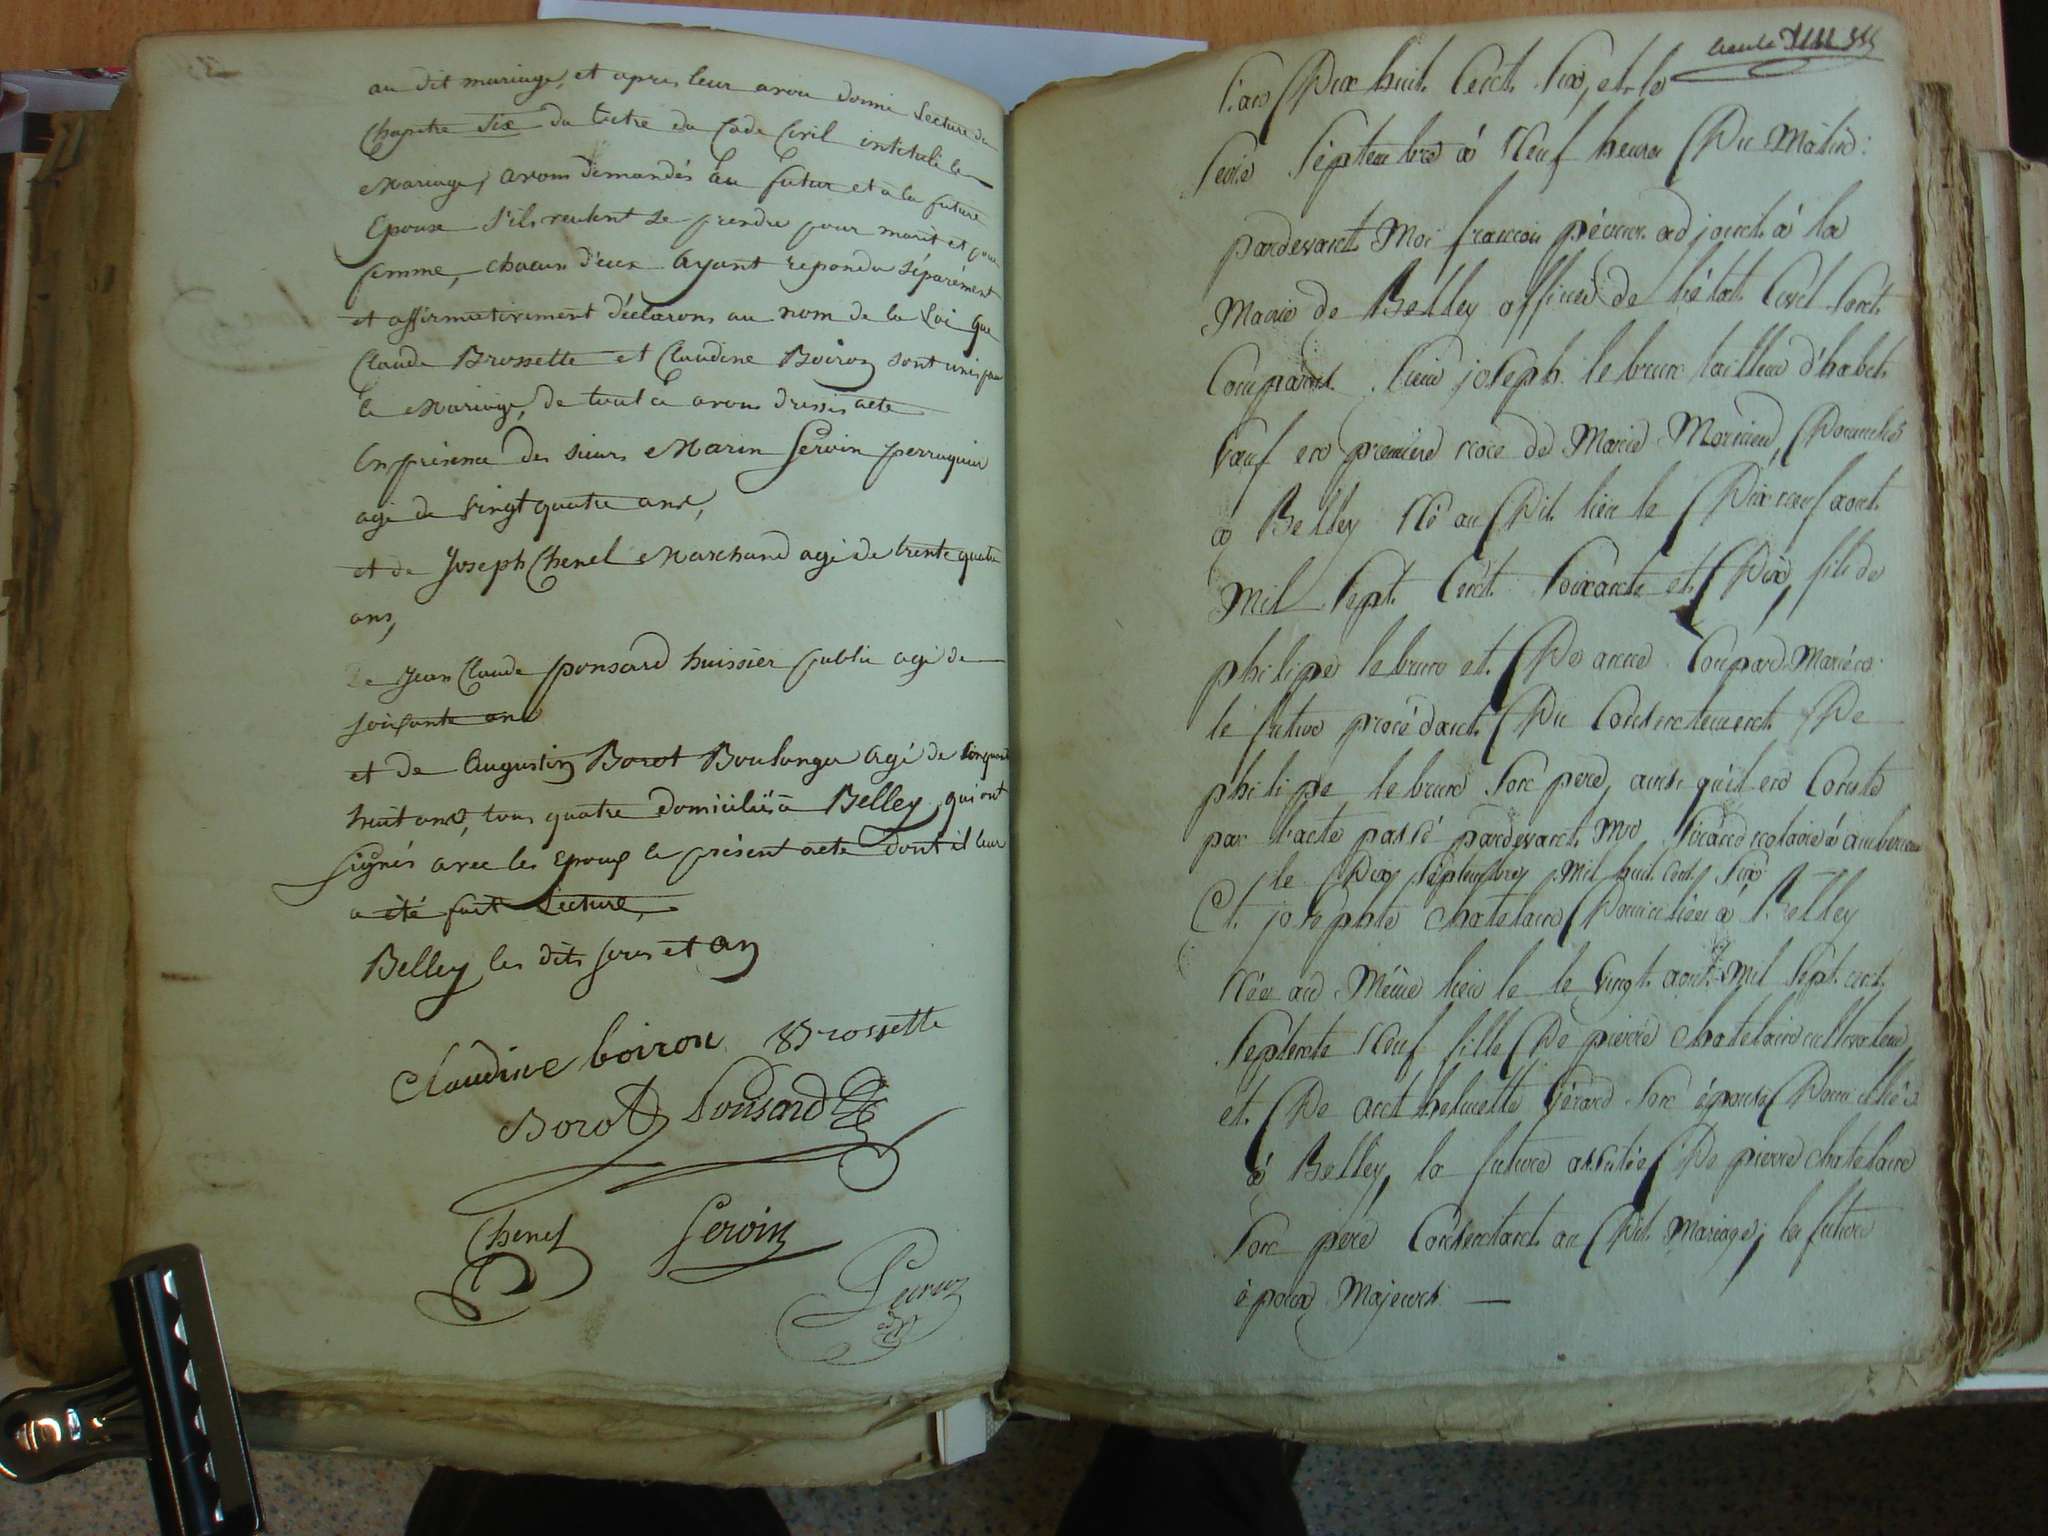 au dit mariage, et apres leur avoir donné Lecture du
Chapitre Six du tittre du Code Civil intitulé le
Mariage, avons demandés au futur et a la future
Epouse s'ils veulent se prendre pour marit et pour
femme, chacun d'eux Ayant repondu séparément
et affirmativement déclarons au nom de la Loi que
Claude Brossette et Claudine Boiron sont unis par
le Mariage, de tout ce avons dressés acte
En présence des sieurs Marin Servin perruquier
agé de vingt quatre ans,
et de Joseph Chenel Marchand agé de trente quatre
ans,
de Jean Claude ponsard huissier public agé de
soixante ans
et de Augustin Borot Boulanger agé de cinquante
huit ans, tous quatre domiciliés à Belley, qui ont
signés avec les Epoux le présent acte dont il leur
a été fait Lecture,
Belley les dits jour et an
Claudine boiron Brossette
Borot Ponsard
Chenel Servin
L'an Dix huit Cent Six, et le
Seize Septembre à Neuf heures Du Matin
pardevant Moi françois adjoint à la
Mairie de Belley officier de l'état Civil sont
Comparut Sieur joseph lebrun tailleur d'habits
Veuf en première noce de Marie Domiciliés
à Belley Né au Dit lieu le Dix neuf août
Mil Sept Cent Soixante et Dix, fils de
philipe lebrun et De anne Mariés
le futur procédant Du Consentement De
philipe lebrun Son père, ainsi qu'il en Conste
par l'acte passé pardevant Me notaire à
le Dix Septembre Mil huit Cent Six
Et josephte chatelain Domiciliée à Belley
Née au Même lieu le le vingt août Mil Sept cent
Septente Neuf fille De pierre chatelain cultivateur
et De anthelmette gérard Son épouse Domiciliés
à Belley, la future assistée De pierre chatelain
Son père Consentant au Dit Mariage, les futurs
époux Majeurs